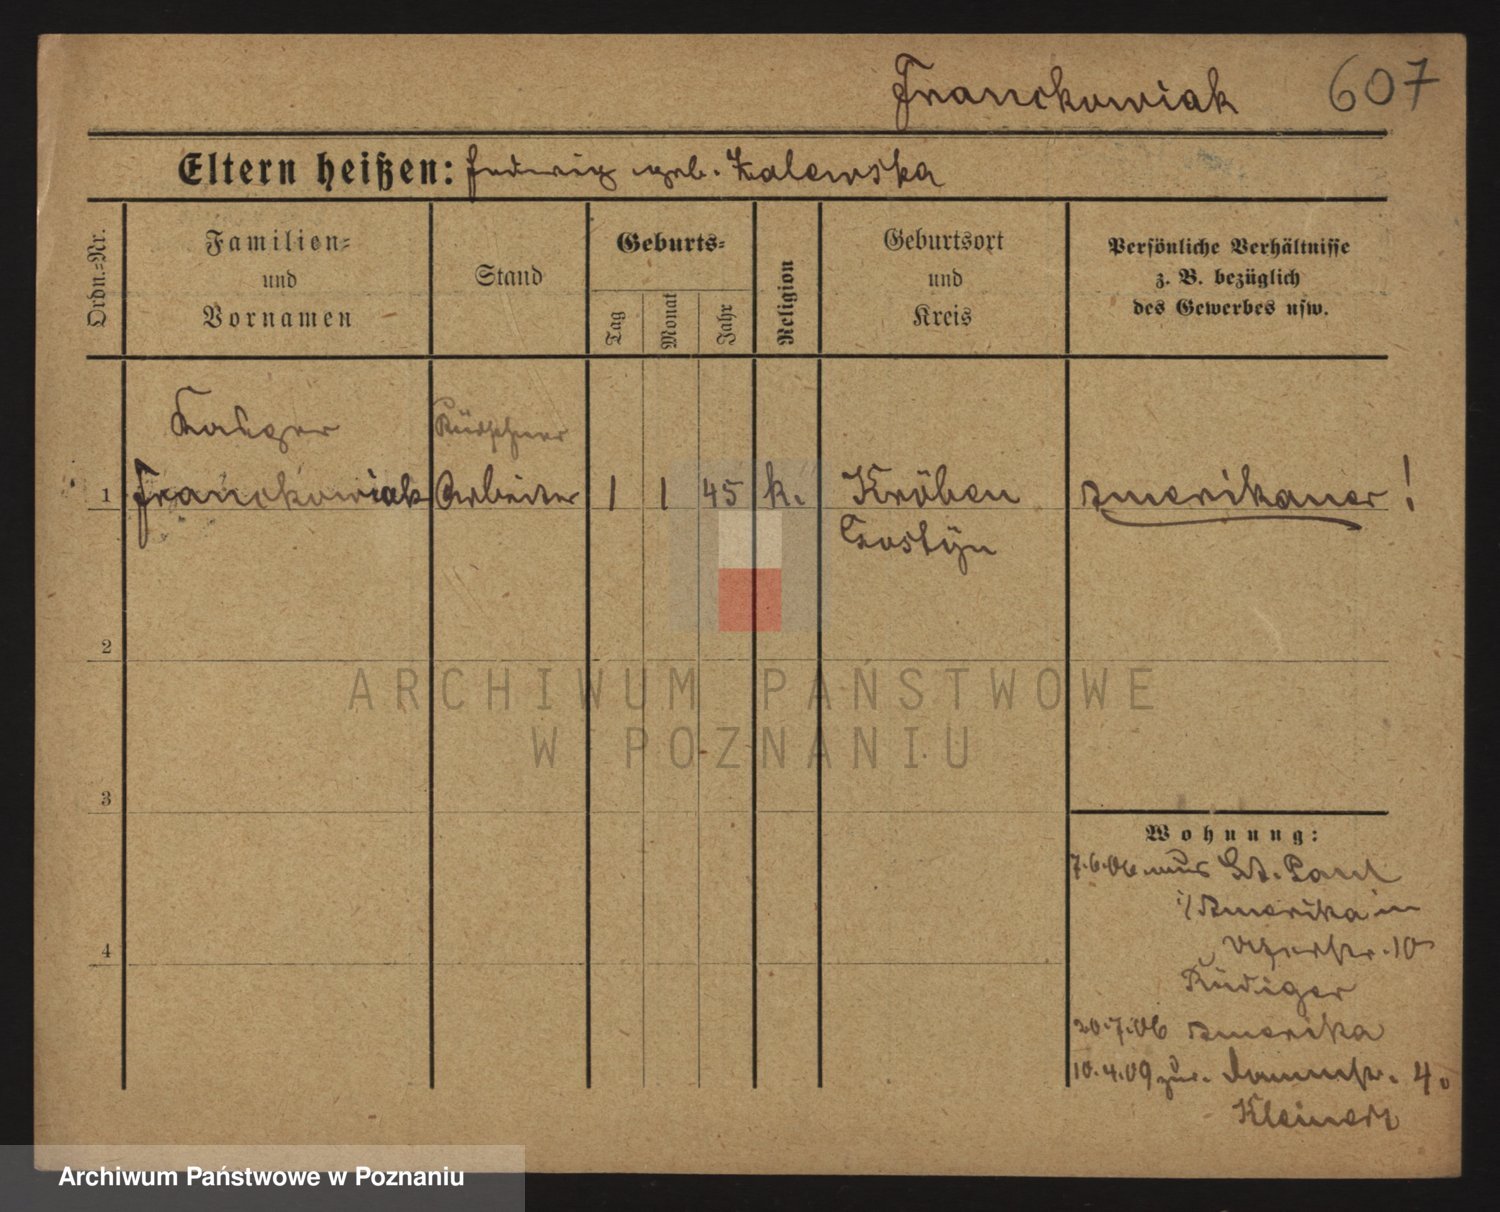 Franckowiak 607
Eltern heißen: Hedwig geb. Zalewska
Ordn.=Nr.
Familien=
und
Vornamen
Stand
Geburts=
Tag
Monat
Jahr
Religion
Geburtsort
und
Kreis
Persönliche Verhältnisse
z. B. bezüglich
des Gewerbes usw.
1 Franckowiak Arbeiter 1 1 45 k. Kröben Amerikaner!
Gostyn
2
ARCHIWUM PAŃSTWOWE
W POZNANIU
3
4
Wohnung:
7.6.06 aus St. Paul
i/Amerika in
10
Rüdiger
20.7.06 Amerika
10.4.09 zur. Dammstr. 4.
Kleinert
Archiwum Państwowe w Poznaniu